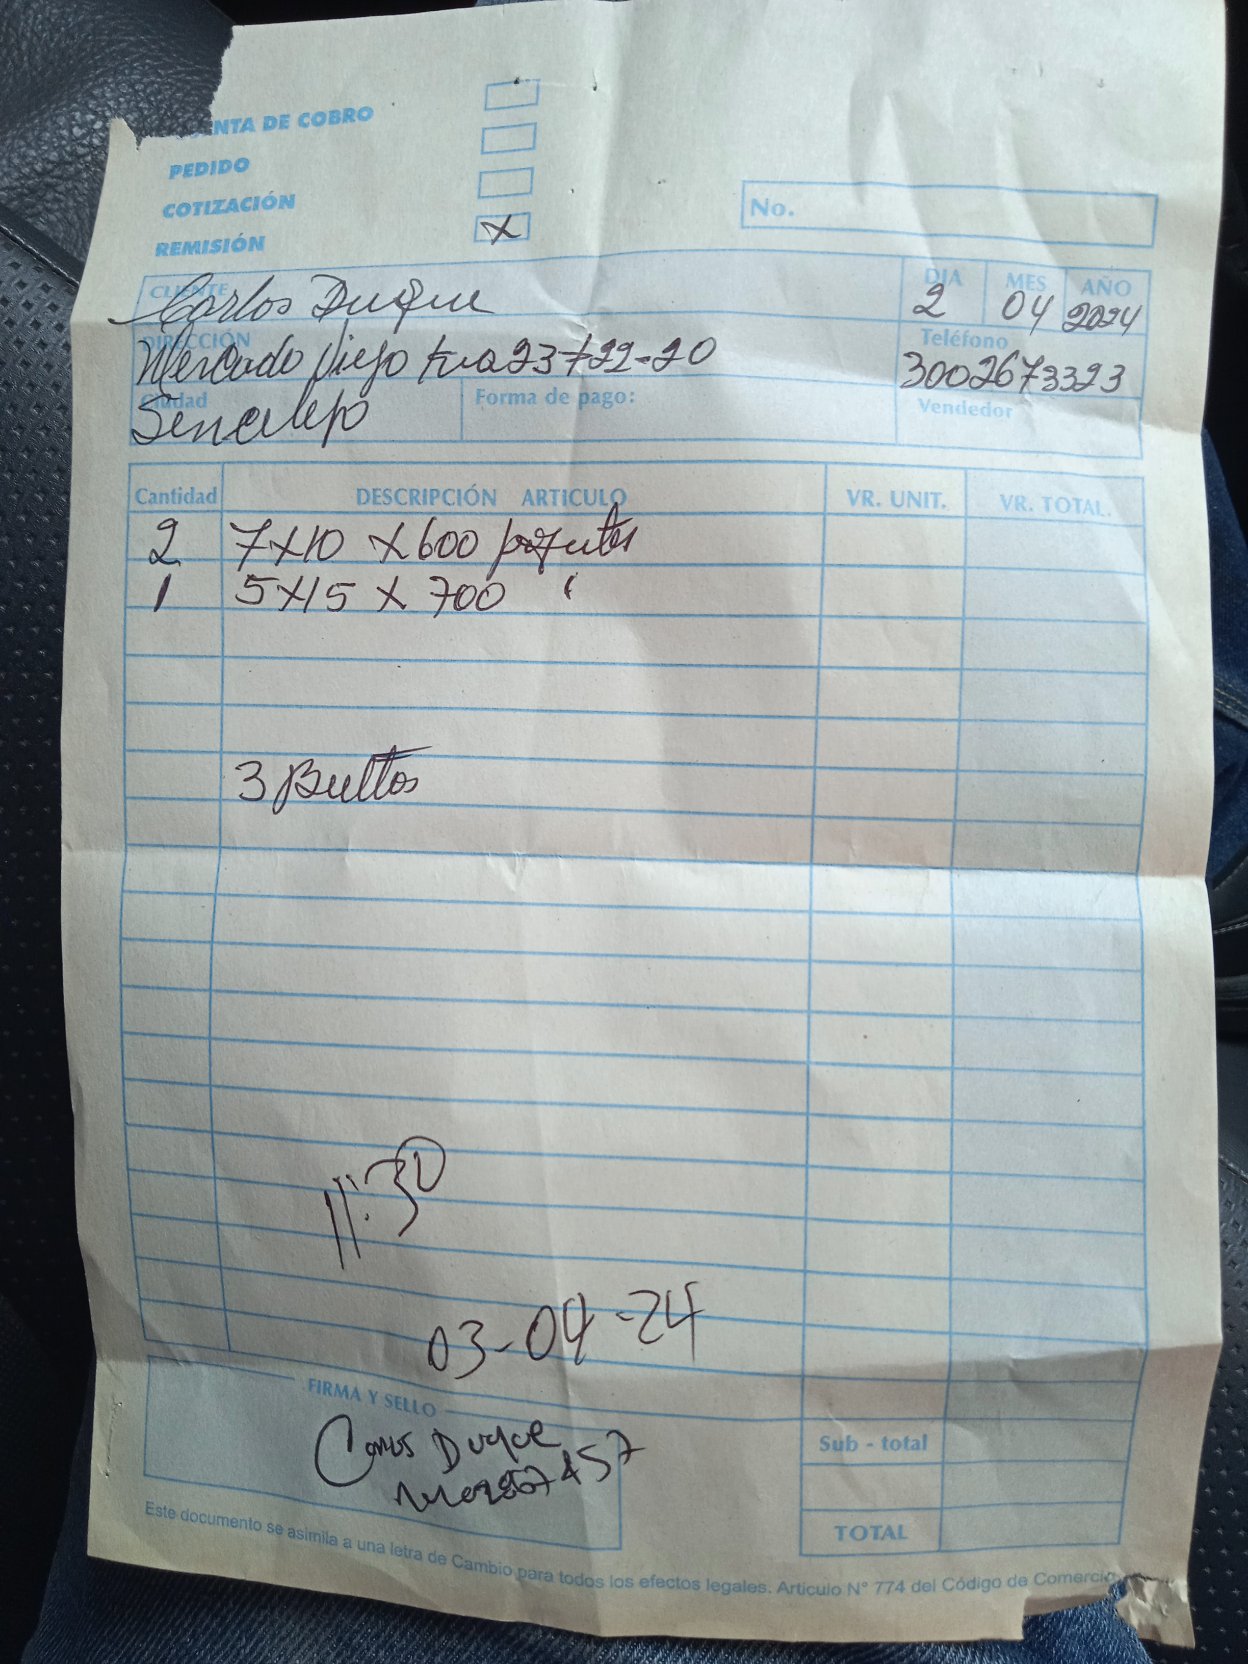 ENTA DE COBRO
PEDIDO
COTIZACIÓN
REMISIÓN X
No.
CLIENTE Carlos Duque
DIA 2 MES 04 AÑO 2024
DIRECCIÓN Mercado Viejo 23 #22-20
Teléfono 3002673323
Ciudad Sincelejo
Forma de pago:
Vendedor
Cantidad DESCRIPCIÓN ARTICULO VR. UNIT. VR. TOTAL.
2 7x10 x 600
1 5x15 x 700 "
3 Bultos
11:30
03-04-24
FIRMA Y SELLO
Carlos Duque
Sub - total
TOTAL
Este documento se asimila a una letra de Cambio para todos los efectos legales. Articulo N° 774 del Código de Comercio